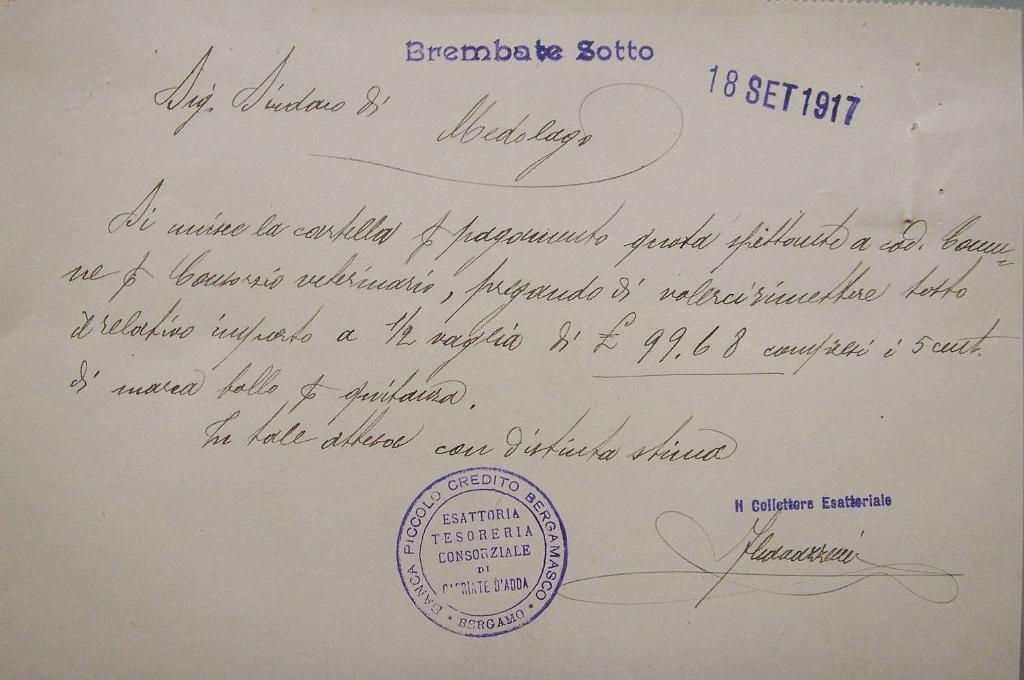 Brembate Sotto
18 SET 1917
Sig. Sindaco di
Medolago
Si unisce la cartella p pagamento quota spettante a cod. Comu=
ne p Consorzio veterinario, pregando di volerci rimettere tosto
il relativo importo a 1/2 vaglia di £ 99.68 compresi i 5 cent.
di marca bollo p quitanza.
In tale attesa con distinta stima
Il Collettore Esattoriale
BANCA PICCOLO CREDITO BERGAMASCO
ESATTORIA
TESORERIA
CONSORZIALE
DI
CAPRIATE D'ADDA
• BERGAMO •